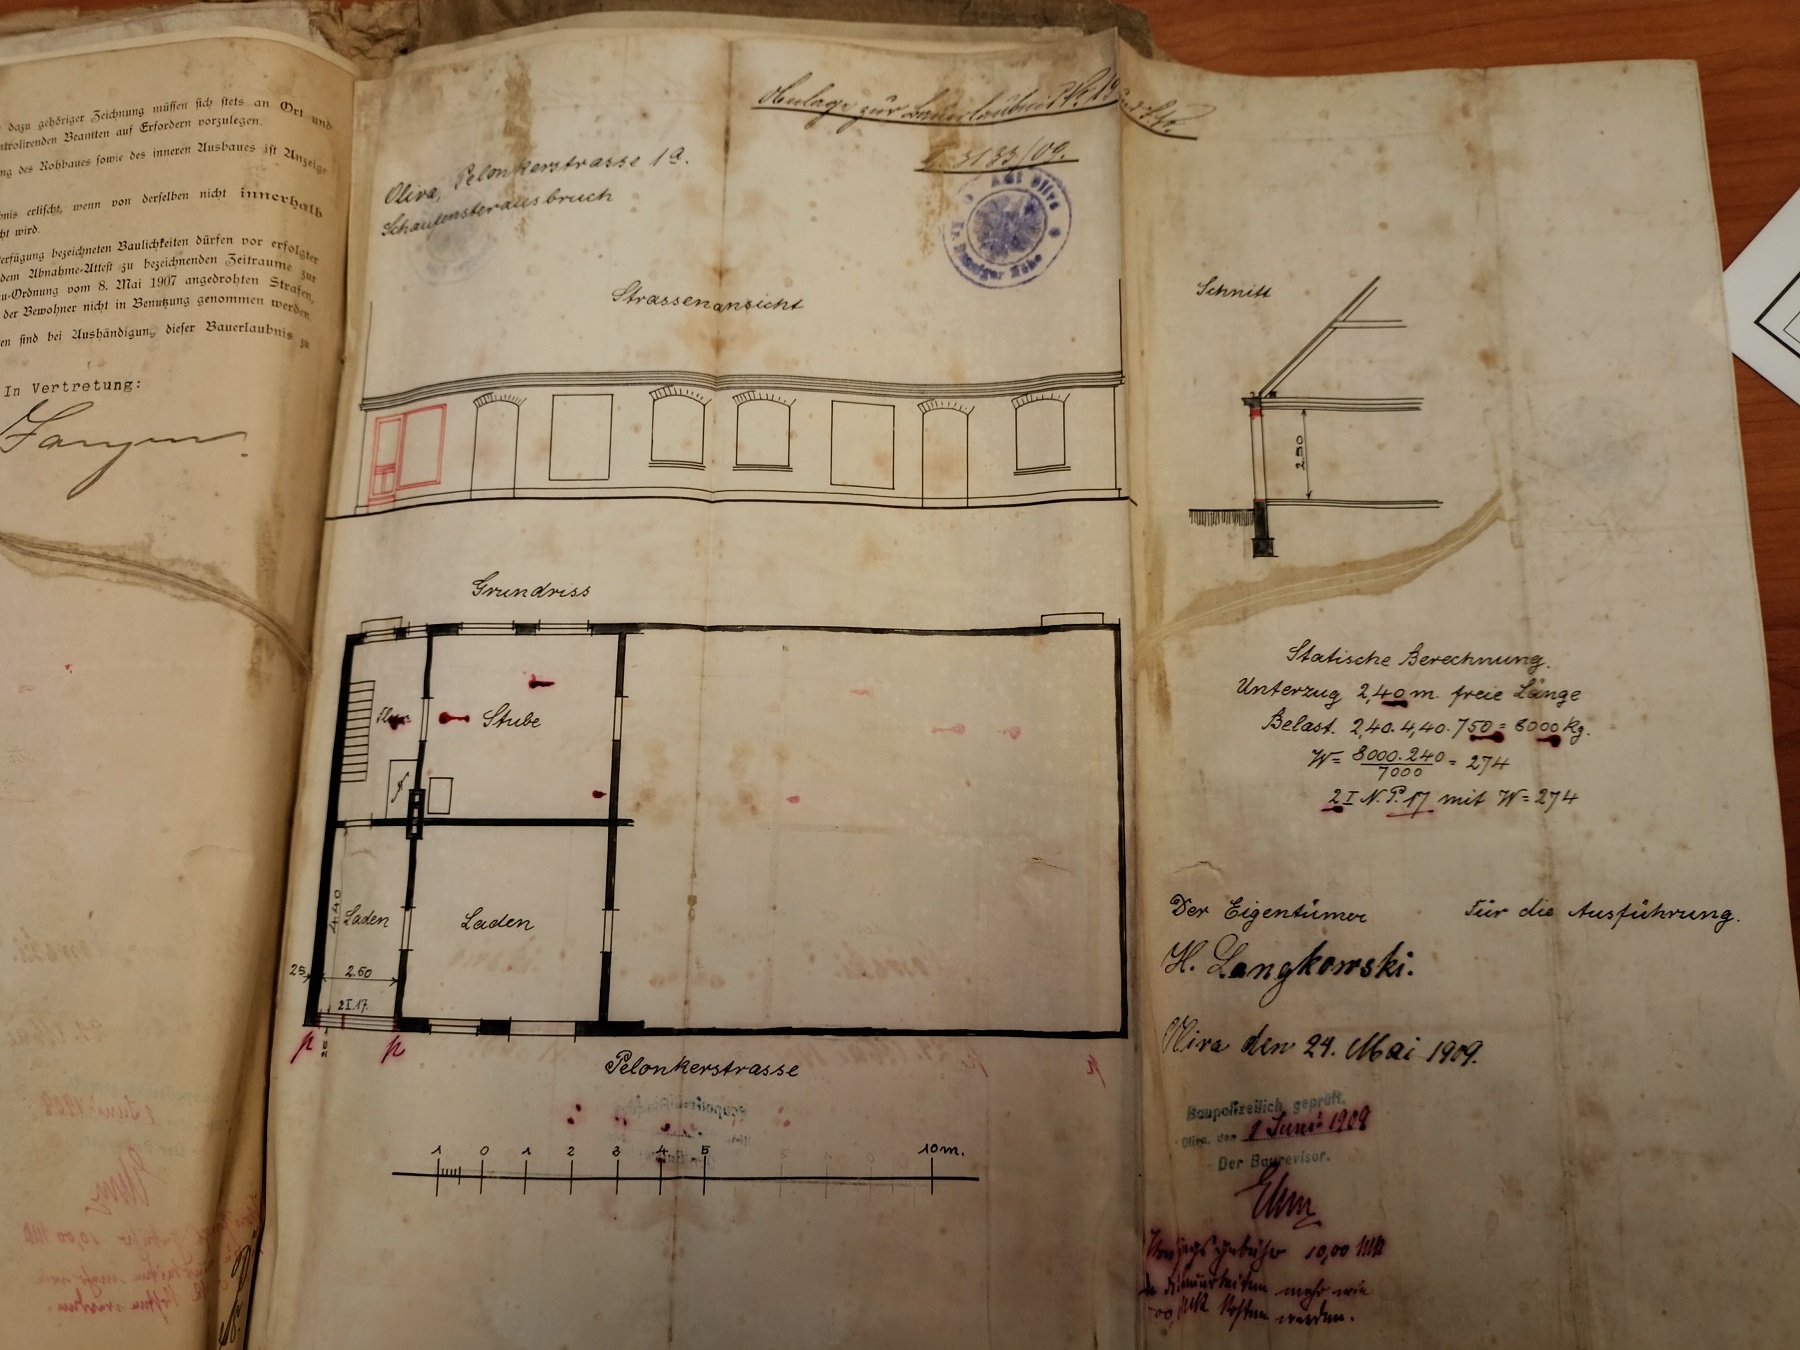 dazu gehöriger Zeichnung müssen sich stets an Ort und
ntrolirenden Beamten auf Erfordern vorzulegen.
ng des Rohbaues sowie des inneren Ausbaues ist Anzeige
bnis erlischt, wenn von derselben nicht innerhalb
cht wird.
erfügung bezeichneten Baulichkeiten dürfen vor erfolgter
dem Abnahme-Attest zu bezeichnenden Zeitraume zur
u-Ordnung vom 8. Mai 1907 angedrohten Strafen,
der Bewohner nicht in Benutzung genommen werden
en sind bei Aushändigung dieser Bauerlaubnis zu
In Vertretung:
Anlage zur Bauerlaubnis No. 19
I. 3133/09.
Amt Oliva
Kr. Danziger Höhe
Oliva, Pelonkerstrasse 1a.
Schaufensterausbruch
Strassenansicht
Schnitt
2.90
Grundriss
Flur
Stube
Laden
Laden
4.40
25
2.60
2 I. 17.
25
p
p
Pelonkerstrasse
1 0 1 2 3 4 5 10 m.
Statische Berechnung.
Unterzug 2,40 m. freie Länge
Belast. 2,40. 4,40. 750 = 8000 kg.
W = 8000. 240 / 7000 = 274
2 I N. P. 17 mit W = 274
Der Eigentümer
Für die Ausführung.
H. Langkowski.
Oliva den 24. Mai 1909.
Baupolizeilich geprüft.
Oliva, den 1 Juni 1909
Der Baurevisor.
gebühr 10,00 Mk
mehr wie
Mk kosten werden.